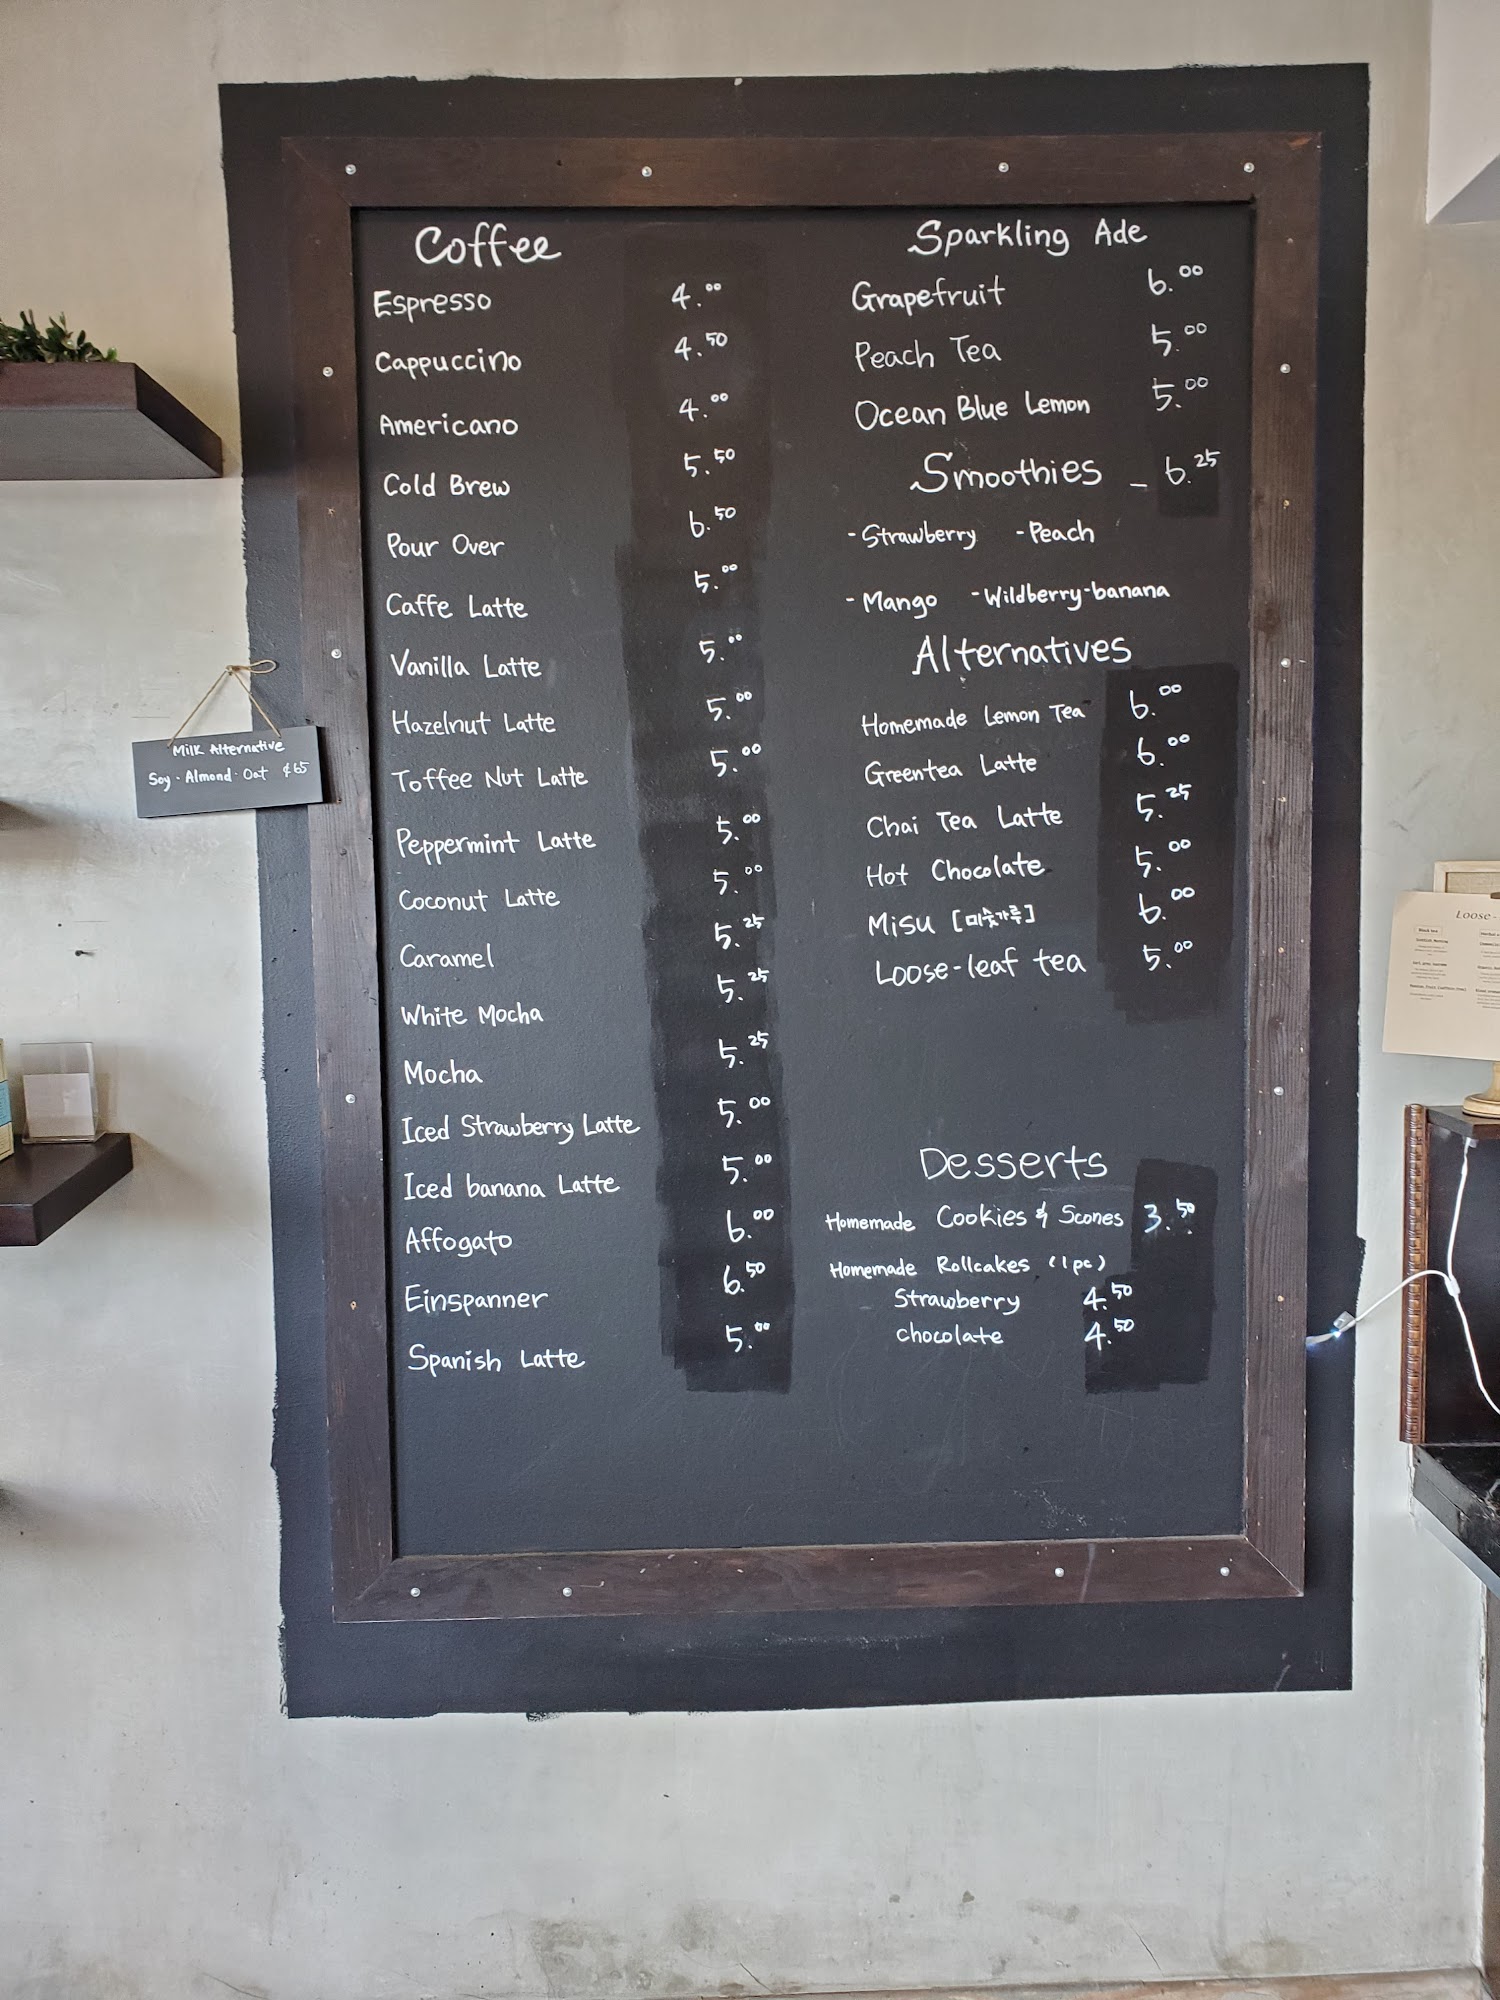 Coffee
Espresso 4.00
Cappuccino 4.50
Americano 4.00
Cold Brew 5.50
Pour Over 6.50
Caffe Latte 5.00
Vanilla Latte 5.00
Hazelnut Latte 5.00
Toffee Nut Latte 5.00
Peppermint Latte 5.00
Coconut Latte 5.00
Caramel 5.25
White Mocha 5.25
Mocha 5.25
Iced Strawberry Latte 5.00
Iced banana Latte 5.00
Affogato 6.00
Einspanner 6.50
Spanish Latte 5.00
Sparkling Ade
Grapefruit 6.00
Peach Tea 5.00
Ocean Blue Lemon 5.00
Smoothies - 6.25
- Strawberry - Peach
- Mango - Wildberry-banana
Alternatives
Homemade Lemon Tea 6.00
Greentea Latte 6.00
Chai Tea Latte 5.25
Hot Chocolate 5.00
Misu [미숫가루] 6.00
Loose-leaf tea 5.00
Desserts
Homemade Cookies & Scones 3.50
Homemade Rollcakes (1pc)
Strawberry 4.50
chocolate 4.50
Milk Alternative
Soy · Almond · Oat ¢65
Loose-